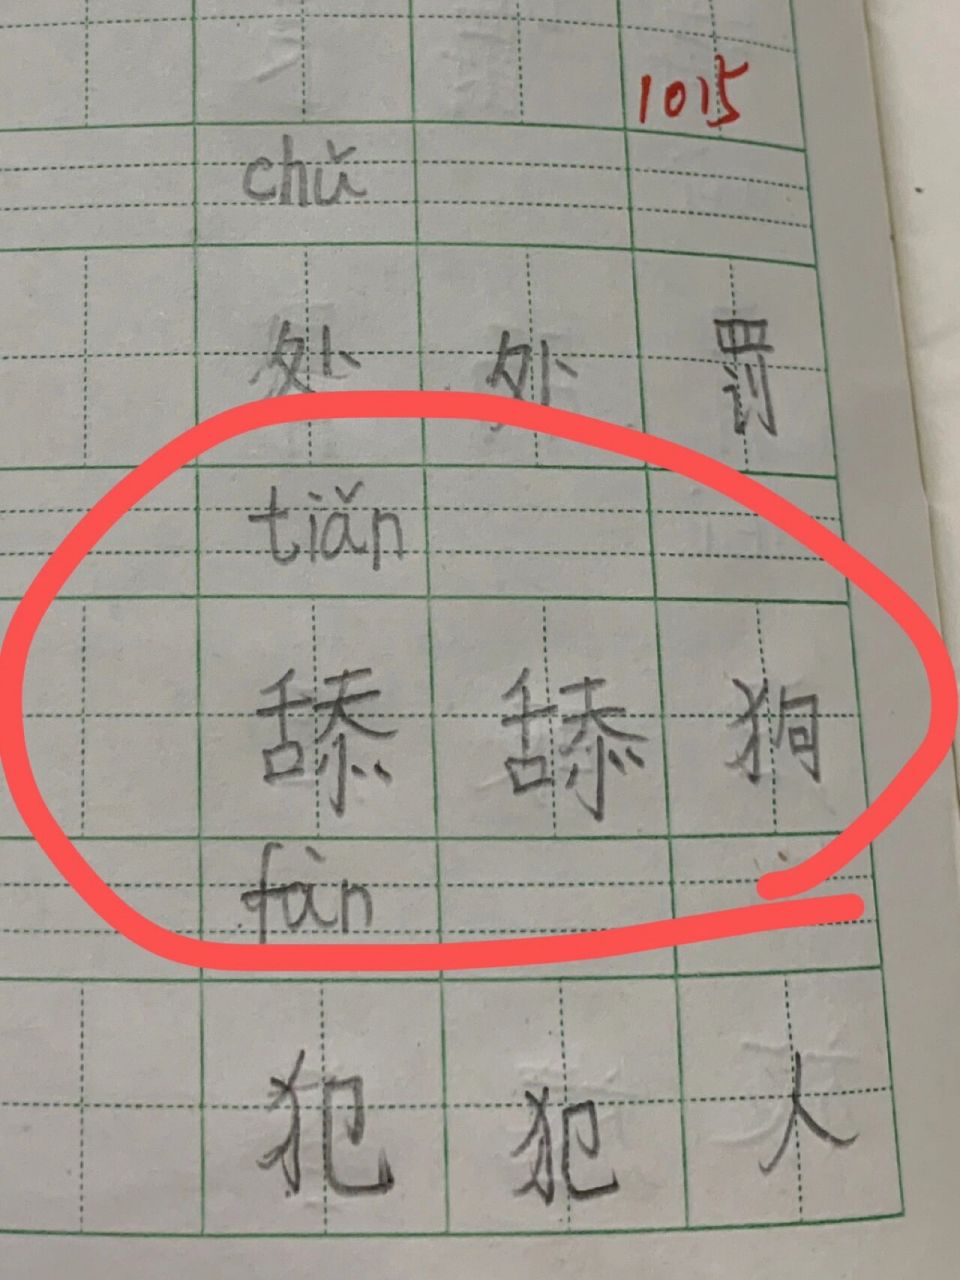 1015
chǔ
处 处 罚
tiǎn
舔 舔 狗
fàn
犯 犯 人